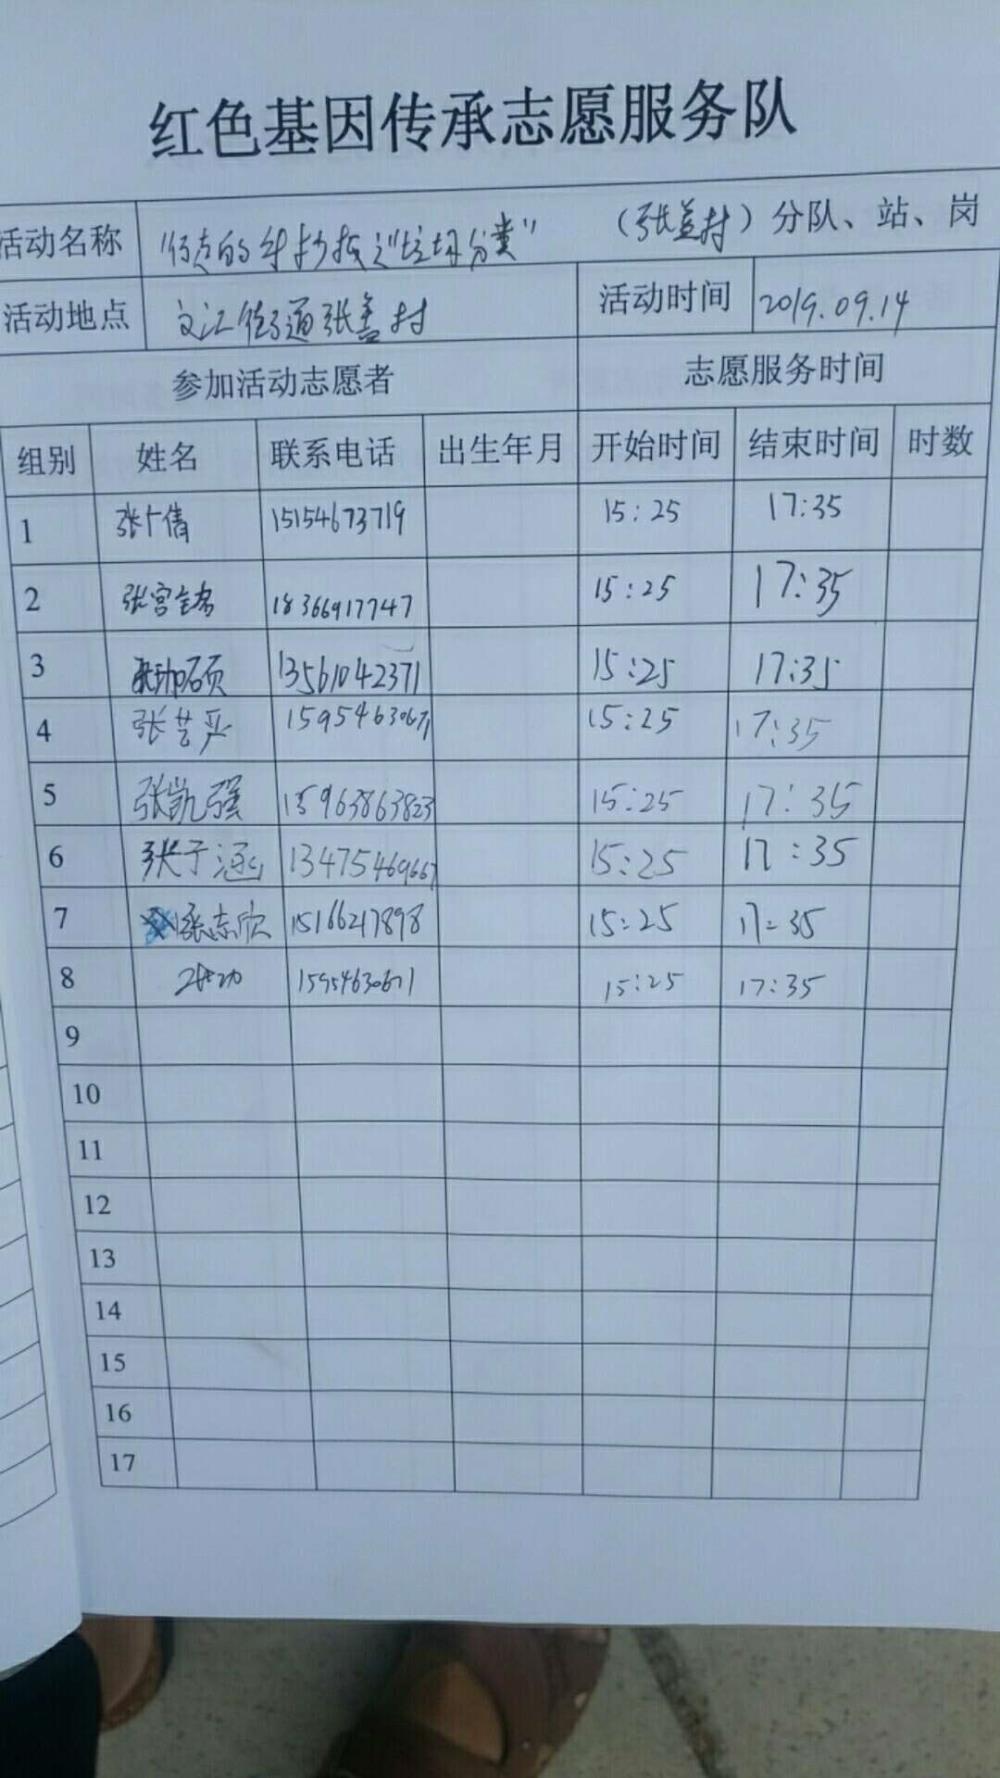 红色基因传承志愿服务队
活动名称 垃圾分类” （张盖村）分队、站、岗
活动地点 文汇街道张盖村 活动时间 2019.09.14
参加活动志愿者 志愿服务时间
组别 姓名 联系电话 出生年月 开始时间 结束时间 时数
1 张倩 15154673719 15:25 17:35
2 张宫 18366917747 15:25 17:35
3 硕 13561042371 15:25 17:35
4 张艺严 15954630671 15:25 17:35
5 张凯强 15963863823 15:25 17:35
6 张于涵 13475469667 15:25 17:35
7 张志欣 15166217898 15:25 17:35
8 15954630671 15:25 17:35
9
10
11
12
13
14
15
16
17